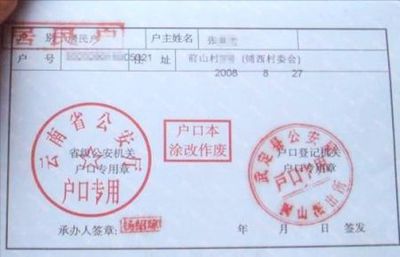 居民户
户别 居民户 户主姓名 张
户号 05921 住址 前山村 (铺西村委会)
2008 8 27
云南省公安厅
户口专用
省级公安机关
户口专用章
户口本
涂改作废
武定县公安
户口专用
派出所
户口登记机关
户口专用章
承办人签章: 年 月 日 签发